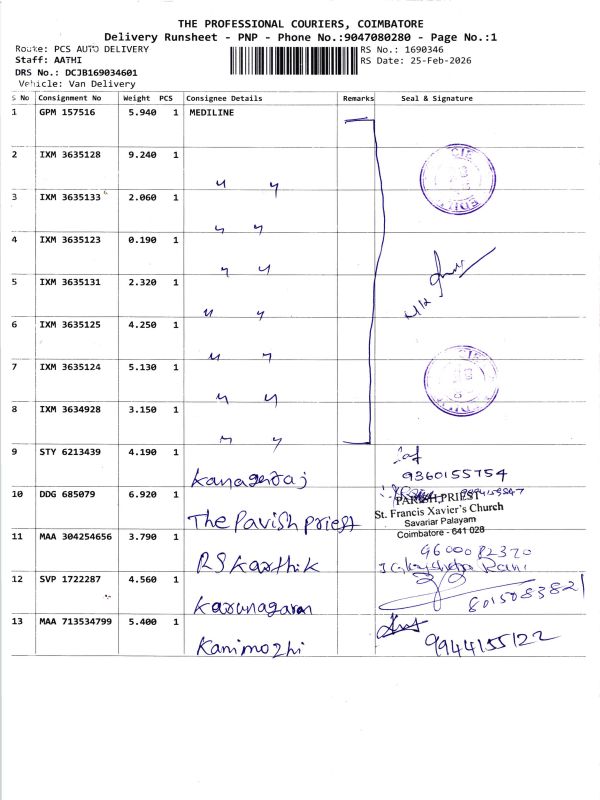 THE PROFESSIONAL COURIERS, COIMBATORE
Delivery Runsheet - PNP - Phone No.:9047080280 - Page No.:1
Route: PCS AUTO DELIVERY
Staff: AATHI
DRS No.: DCJB169034601
Vehicle: Van Delivery
RS No.: 1690346
RS Date: 25-Feb-2026
S No Consignment No Weight PCS Consignee Details Remarks Seal & Signature
1 GPM 157516 5.940 1 MEDILINE
2 IXM 3635128 9.240 1 〃 〃
3 IXM 3635133 2.060 1 〃 〃
4 IXM 3635123 0.190 1 〃 〃
5 IXM 3635131 2.320 1 〃 〃
6 IXM 3635125 4.250 1 〃 〃
7 IXM 3635124 5.130 1 〃 〃
8 IXM 3634928 3.150 1 〃 〃
9 STY 6213439 4.190 1 Kanagaraj 9360155754
10 DDG 685079 6.920 1 The Parish priest
PARISH PRIEST
St. Francis Xavier's Church
Savariar Palayam
Coimbatore - 641 028
11 MAA 304254656 3.790 1 RS Karthik 9600082370
12 SVP 1722287 4.560 1 Karunagaran 8015083821
13 MAA 713534799 5.400 1 Kanimozhi 9944155122